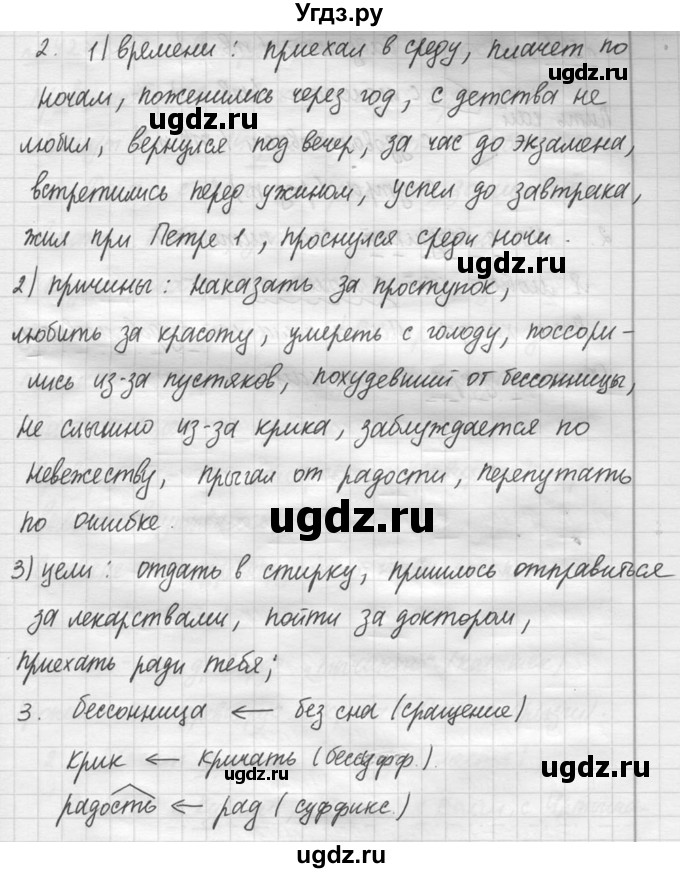 Угдз.ру
2. 1) времени: приехал в среду, плачет по
ugdz.ru
ночам, поженились через год, с детства не
ugdz.ru
любил, вернулся под вечер, за час до экзамена,
встретились перед ужином, успел до завтрака,
жил при Петре 1, проснулся среди ночи.
ugdz.ru
2) причины: наказать за проступок,
любить за красоту, умереть с голоду, поссори-
лись из-за пустяков, похудевший от бессонницы,
не слышно из-за крика, заблуждается по
невежеству, прыгал от радости, перепутать
ugdz.ru
по ошибке.
3) цели: отдать в стирку, пришлось отправиться
за лекарствами, пойти за доктором,
приехать ради тебя;
3. бессонница ← без сна (сращение)
крик ← кричать (бессуфф.)
ugdz.ru ugdz.ru
радость ← рад (суффикс.)
ugdz.ru